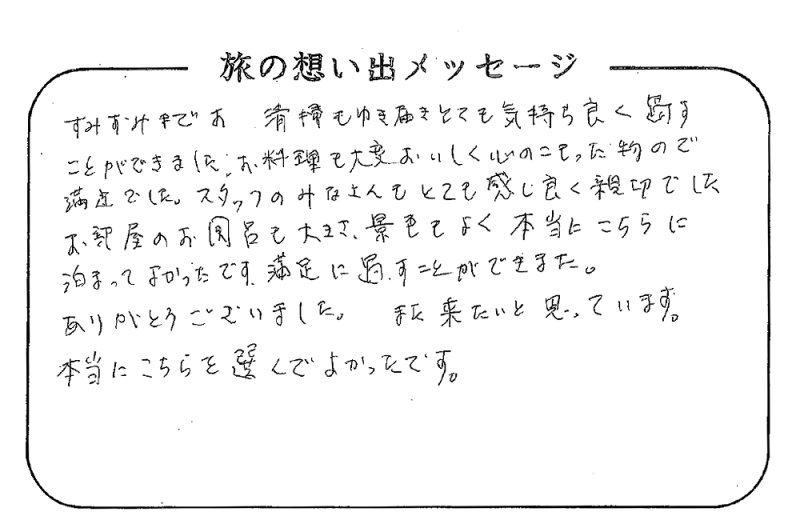 旅の想い出メッセージ
すみずみまでお 清掃もゆき届きとても気持ち良く過す
ことができました。お料理も大変おいしく心のこもった物ので
満足でした。スタッフのみなさんもとても感じ良く親切でした
お部屋のお風呂も大きさ、景色もよく本当にこちらに
泊まってよかったです。満足に過すことができました。
ありがとうございました。 また来たいと思っています。
本当にこちらを選んでよかったです。